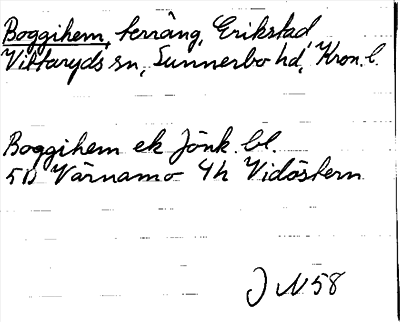 Boggihem, terräng, Erikstad
Vittaryds sn, Sunnerbo hd, Kron. l.
Boggihem ek Jönk. bl.
5D Värnamo 4h Vidöstern
J N 58